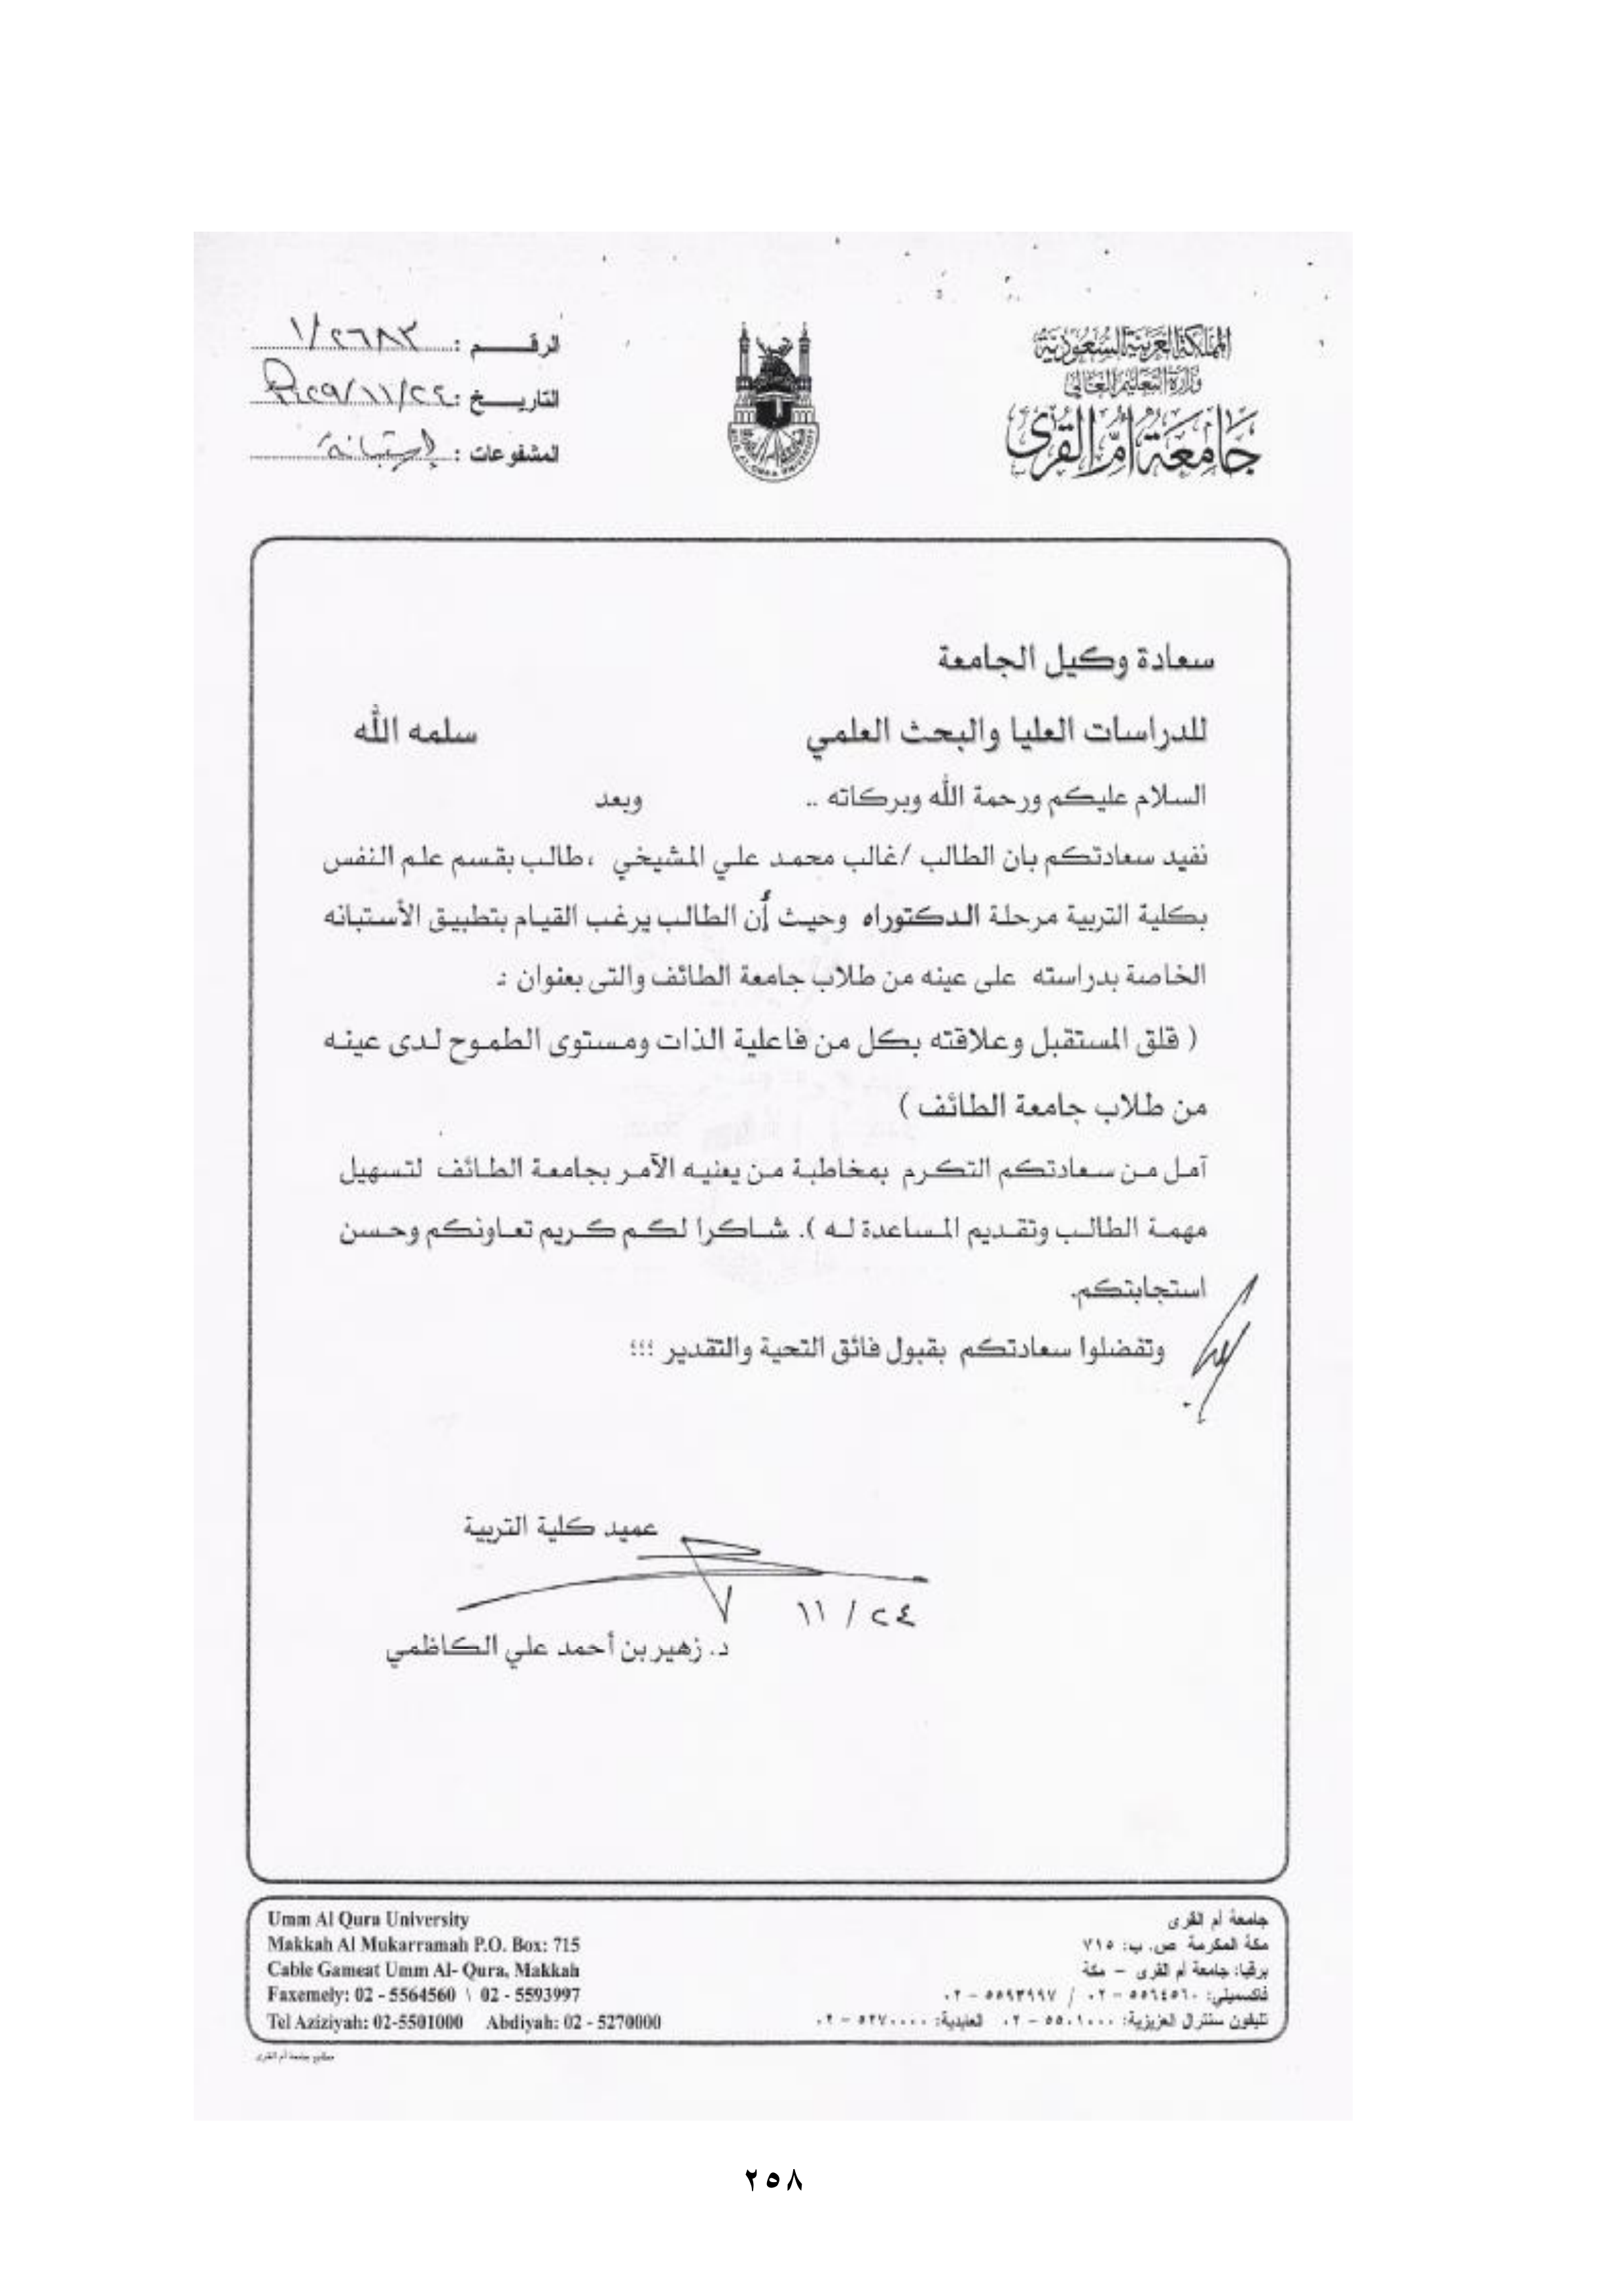 المملكة العربية السعودية
وزارة التعليم العالي
جامعة أم القرى
الرقـــــم : ١/٢٦٨٣
التاريـــخ : ٢٩/١١/٢٤
المشفوعات : إستبانة
سعادة وكيل الجامعة
للدراسات العليا والبحث العلمي سلمه الله
السلام عليكم ورحمة الله وبركاته .. وبعد
نفيد سعادتكم بان الطالب /غالب محمد علي المشيخي ،طالب بقسم علم النفس
بكلية التربية مرحلة الدكتوراه وحيث أن الطالب يرغب القيام بتطبيق الأستبانه
الخاصة بدراسته على عينه من طلاب جامعة الطائف والتى بعنوان :ـ
( قلق المستقبل وعلاقته بكل من فاعلية الذات ومستوى الطموح لدى عينه
من طلاب جامعة الطائف )
آمل من سعادتكم التكرم بمخاطبة من يعنيه الآمر بجامعة الطائف لتسهيل
مهمة الطالب وتقديم المساعدة له ). شاكرا لكم كريم تعاونكم وحسن
استجابتكم.
وتفضلوا سعادتكم بقبول فائق التحية والتقدير ؛؛؛
عميد كلية التربية
٢٤ / ١١
د. زهير بن أحمد علي الكاظمي
Umm Al Qura University
Makkah Al Mukarramah P.O. Box: 715
Cable Gameat Umm Al- Qura, Makkah
Faxemely: 02 - 5564560 \ 02 - 5593997
Tel Aziziyah: 02-5501000 Abdiyah: 02 - 5270000
جامعة أم القرى
مكة المكرمة ص. ب: ٧١٥
برقيا: جامعة أم القرى – مكة
فاكسميلي: ٥٥٦٤٥٦٠ – ٠٢ / ٥٥٩٣٩٩٧ – ٠٢
تليفون سنترال العزيزية: ٥٥٠١٠٠٠ – ٠٢ العابدية: ٥٢٧٠٠٠٠ – ٠٢
مطابع جامعة أم القرى
٢٥٨